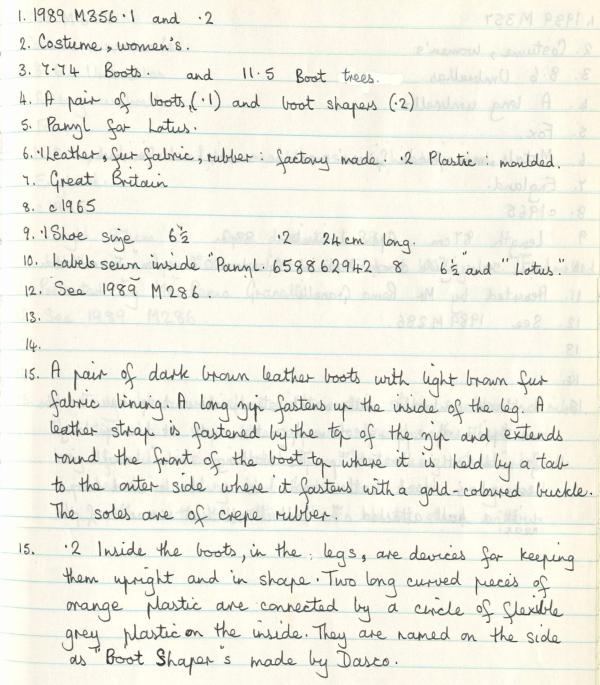 1. 1989 M356·1 and ·2
2. Costume, women's.
3. 7·74 Boots. and 11·5 Boot trees.
4. A pair of boots, (·1) and boot shapers (·2)
5. Panyl for Lotus.
6. ·1 Leather, fur fabric, rubber : factory made. ·2 Plastic : moulded.
7. Great Britain
8. c1965
9. ·1 Shoe size 6½ ·2 24cm long.
10. Labels sewn inside "Panyl. 658862942 8 6½" and "Lotus."
12. See 1989 M286.
13.
14.
15. A pair of dark brown leather boots with light brown fur
fabric lining. A long zip fastens up the inside of the leg. A
leather strap is fastened by the top of the zip and extends
round the front of the boot top where it is held by a tab
to the outer side where it fastens with a gold-coloured buckle.
The soles are of crepe rubber.
15. ·2 Inside the boots, in the legs, are devices for keeping
them upright and in shape. Two long curved pieces of
orange plastic are connected by a circle of flexible
grey plastic on the inside. They are named on the side
as "Boot Shaper"s made by Dasco.